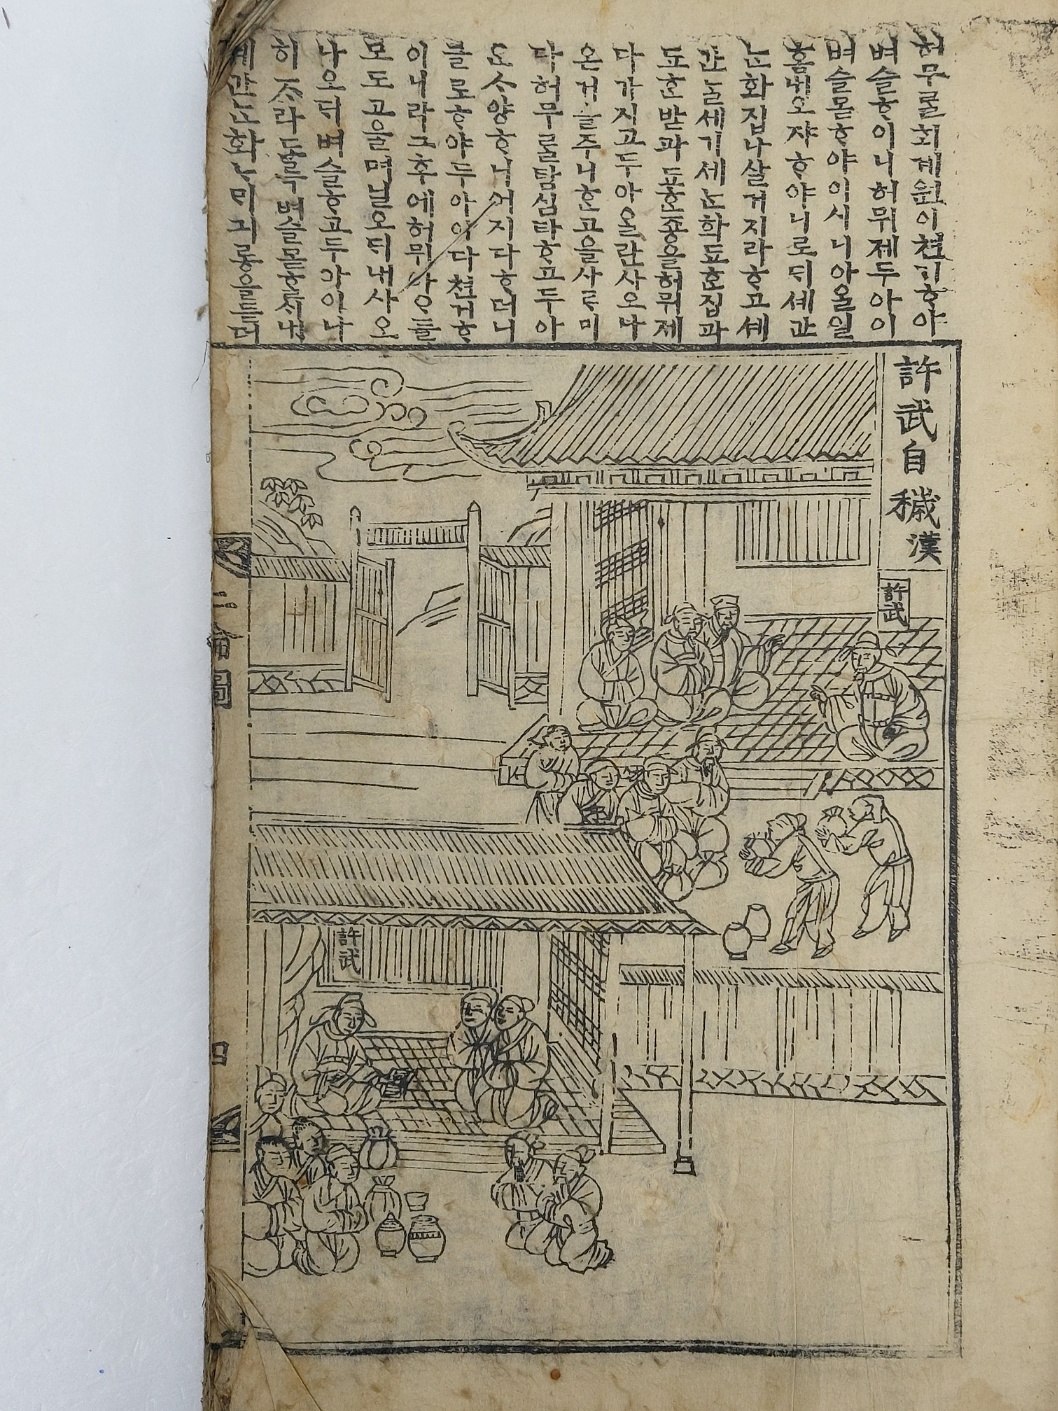 허무룰회계원이쳔거ᄒᆞ야
벼슬ᄒᆞ이니허뮈제두아이
벼슬몯ᄒᆞ야이시니아올일
홈내오쟈ᄒᆞ야니로ᄃᆡ셰간
ᄂᆞᆫ화집나살거지라ᄒᆞ고셰
간ᄂᆞᆯ세기세ᄂᆞᆫ화됴ᄒᆞᆫ집과
됴ᄒᆞᆫ받과됴ᄒᆞᆫ죵을허뮈제
다가지고두아ᄋᆞ란사오나
온거ᄉᆞᆯ주니ᄒᆞᆫ고을사ᄅᆞ미
다허무룰탐심타ᄒᆞ고두아
ᄋᆞᄂᆞᆫ ᄉᆞ양ᄒᆞ니어지다ᄒᆞ더니
글로ᄒᆞ야두아이다쳔거ᄒᆞ
이니라그후에허뮈아ᄋᆞᄃᆞᆯ
모도고울며닐오ᄃᆡ내사오
나오ᄃᆡ벼슬ᄒᆞ고두아이나
히ᄌᆞ라ᄃᆞ록벼슬몯ᄒᆞᆯᄉᆡ내
셰간ᄂᆞᆫ화ᄂᆞ미긔롱을들어
許武自穢 漢
許武
許武
二倫圖
四